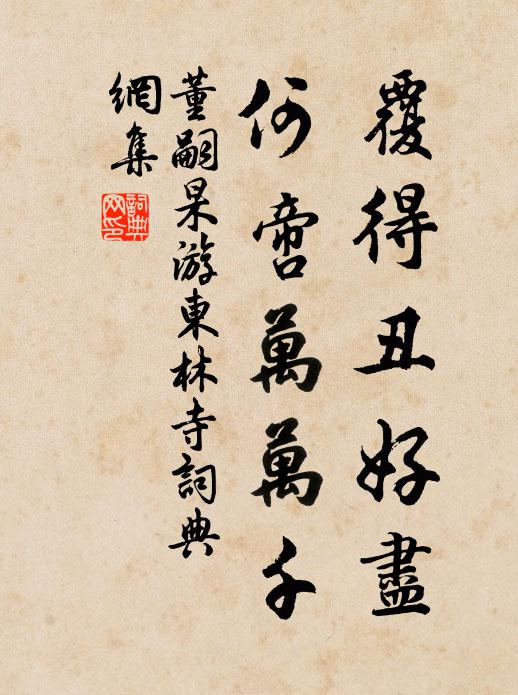 覆得丑好盡
何啻萬萬千
董嗣杲游東林寺詞典
網集
詞典
网印